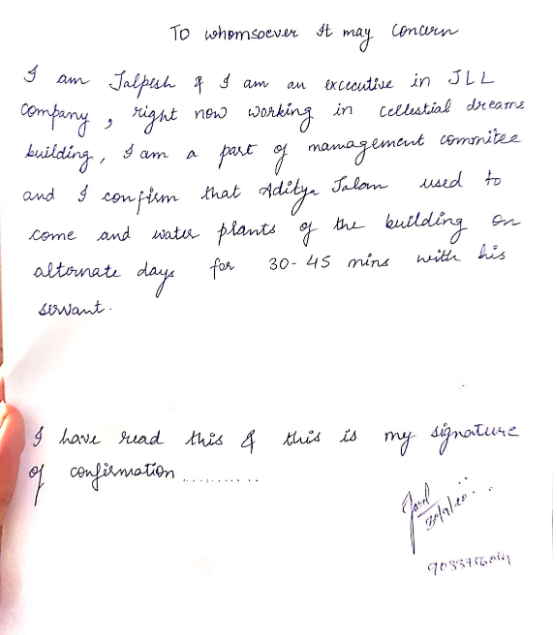 To whomsoever It may concern
I am Jalpesh & I am an excecutive in JLL
company, right now working in cellestial dreams
building, I am a part of management commitee
and I confirm that Aditya Jalan used to
come and water plants of the building on
alternate days for 30-45 mins with his
servant.
I have read this & this is my signature
of confirmation ..........